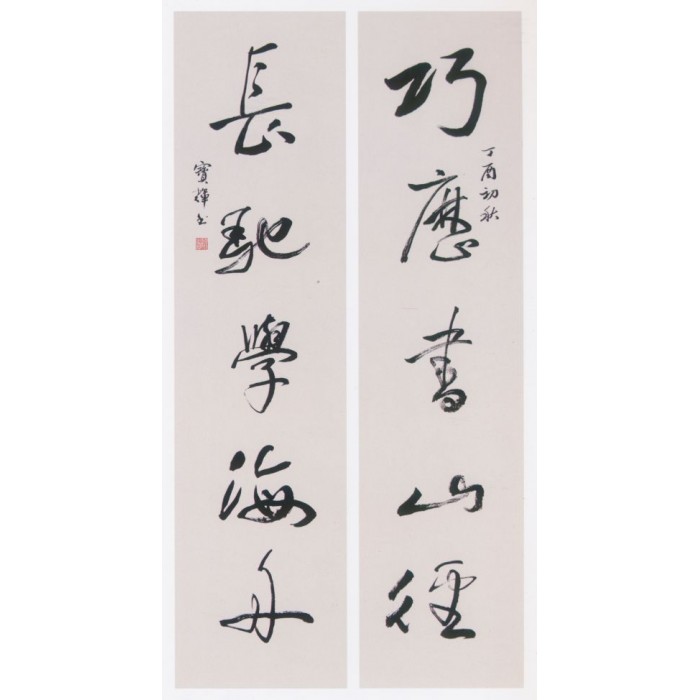 巧歷書山徑
丁酉初秋
長馳學海舟
寶輝书